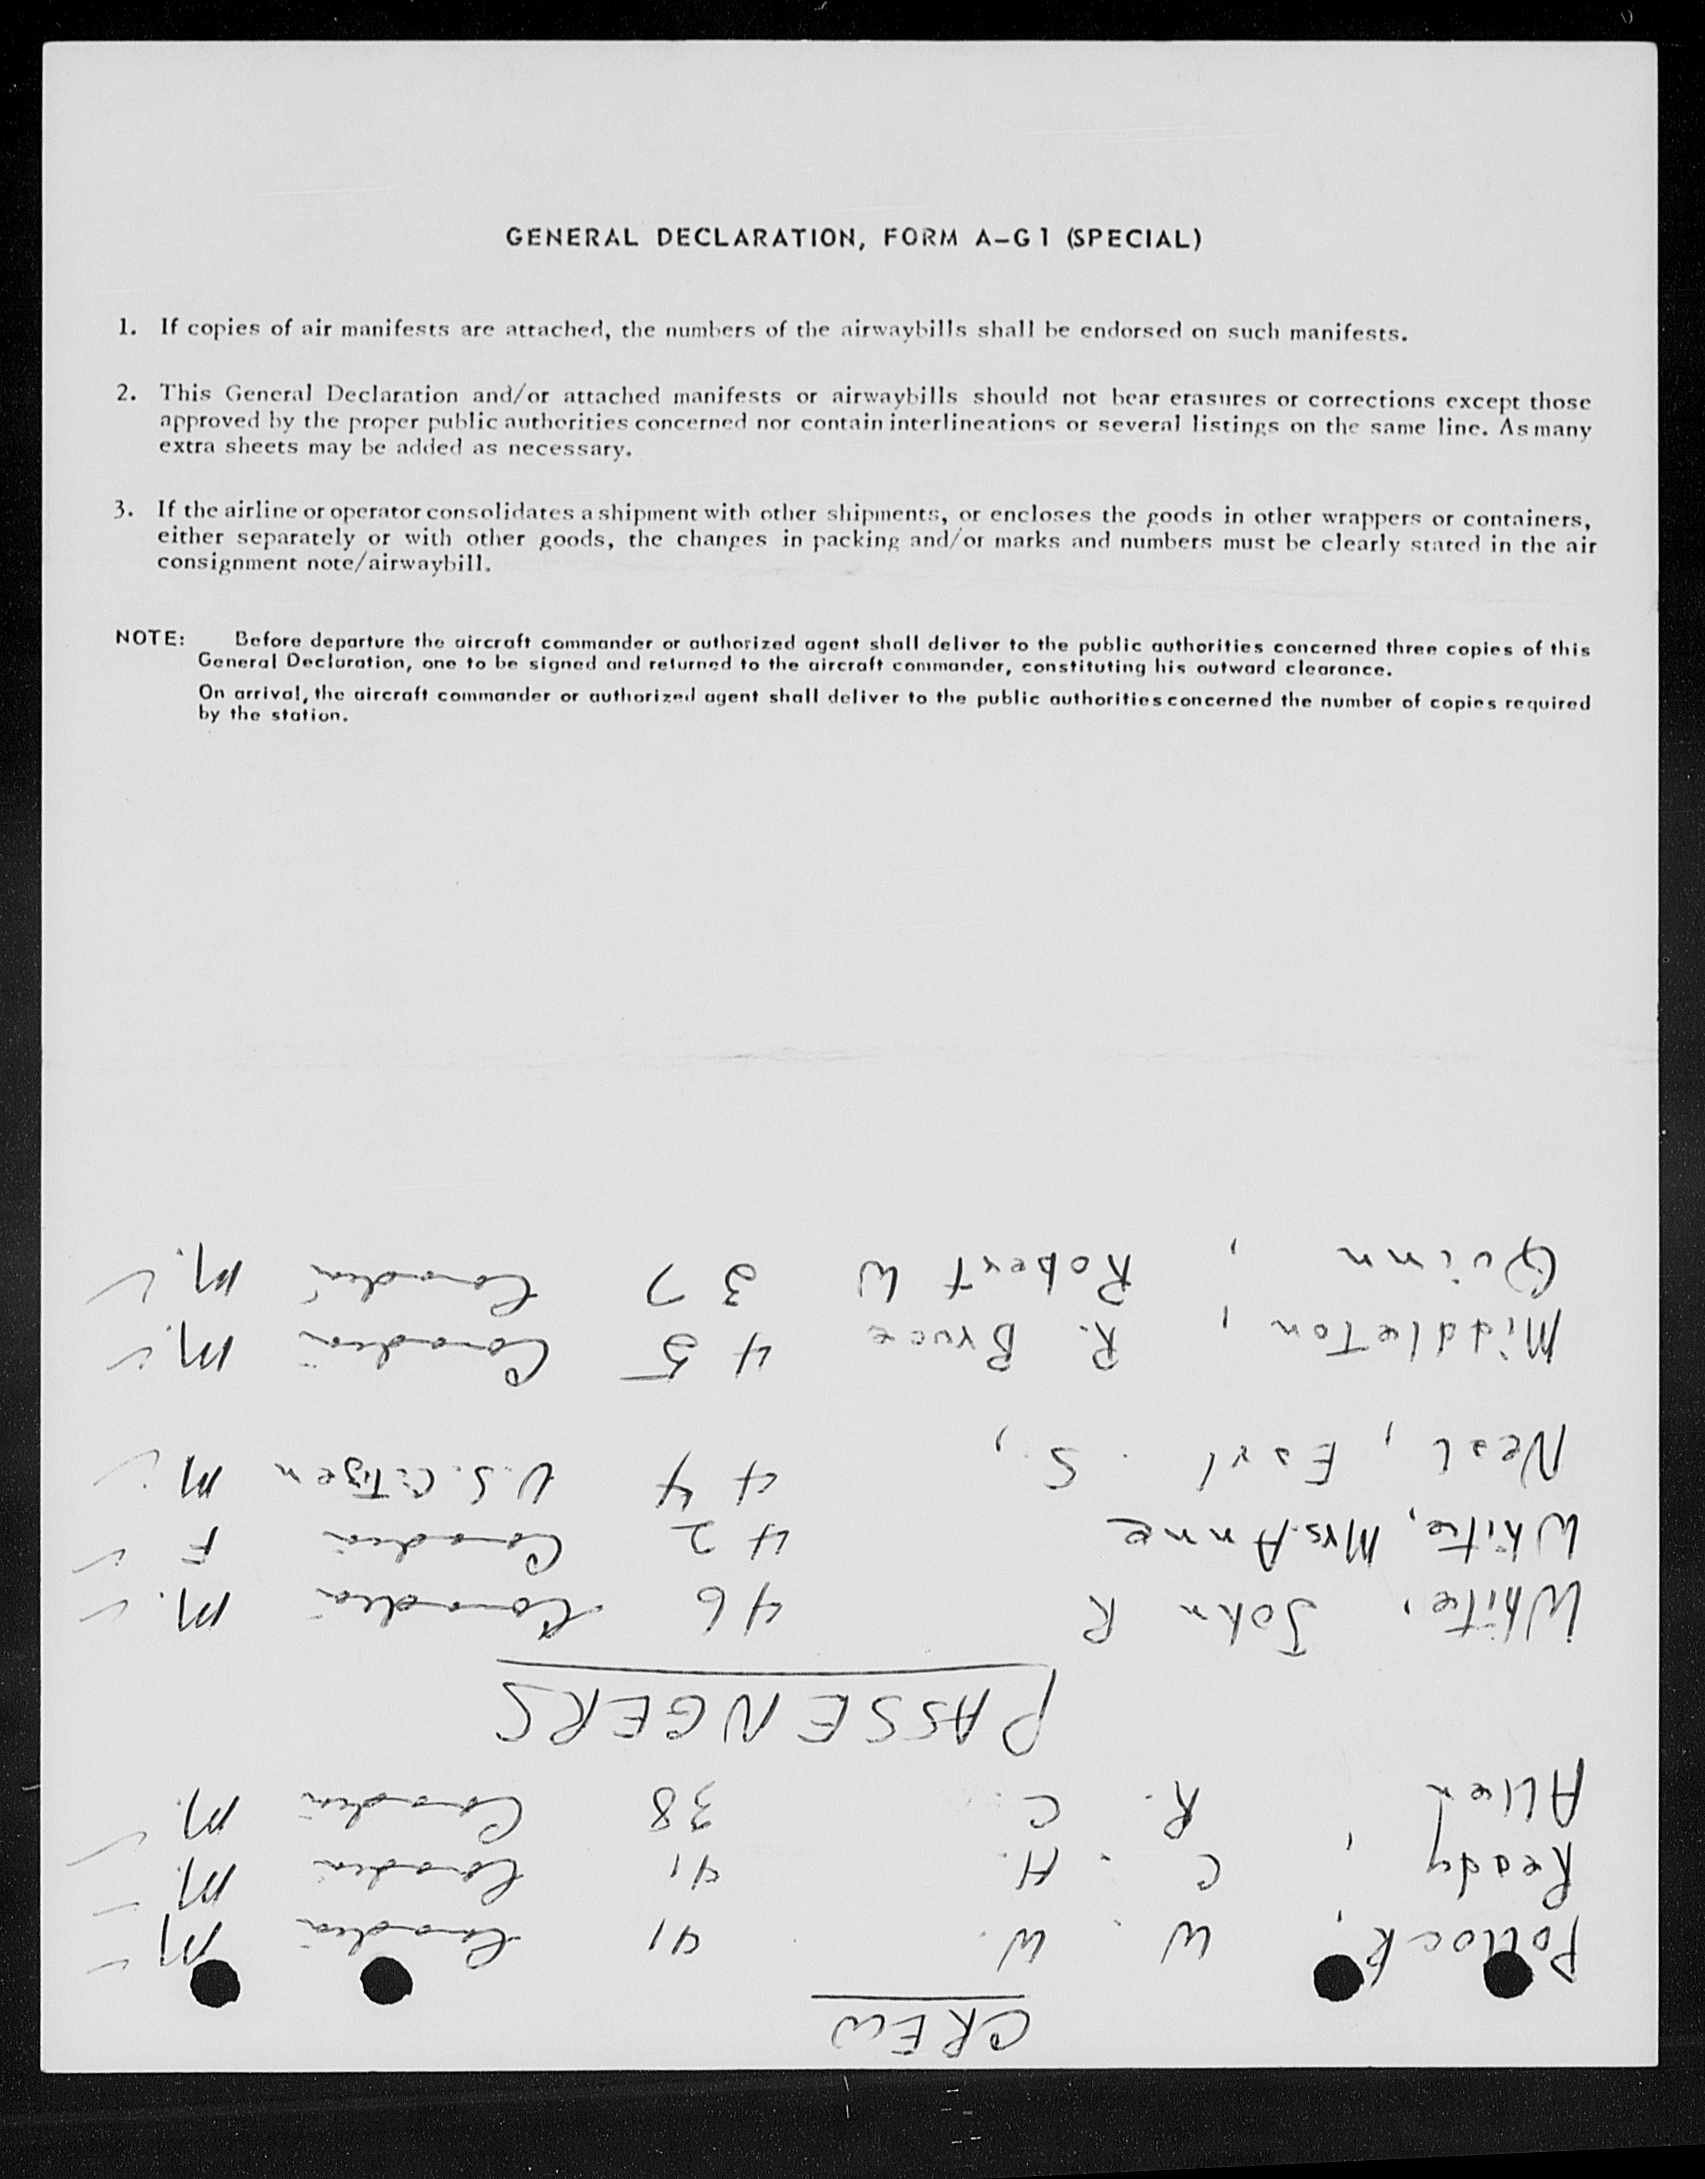 GENERAL DECLARATION, FORM A-G1 (SPECIAL)
1. If copies of air manifests are attached, the numbers of the airwaybills shall be endorsed on such manifests.
2. This General Declaration and/or attached manifests or airwaybills should not bear erasures or corrections except those
approved by the proper public authorities concerned nor contain interlineations or several listings on the same line. As many
extra sheets may be added as necessary.
3. If the airline or operator consolidates a shipment with other shipments, or encloses the goods in other wrappers or containers,
either separately or with other goods, the changes in packing and/or marks and numbers must be clearly stated in the air
consignment note/airwaybill.
NOTE: Before departure the aircraft commander or authorized agent shall deliver to the public authorities concerned three copies of this
General Declaration, one to be signed and returned to the aircraft commander, constituting his outward clearance.
On arrival, the aircraft commander or authorized agent shall deliver to the public authorities concerned the number of copies required
by the station.
CREW
Pollock, W. W. 41 Canadian M
Ready, C. H. 41 Canadian M.
Allen R. C. 38 Canadian M.
PASSENGERS
White, John R 46 Canadian M.
White, Mrs. Anne 42 Canadian F
Neal, Earl S., 44 U.S. Citizen M.
Middleton, R. Bruce 45 Canadian M.
Quinn, Robert W 37 Canadian M.